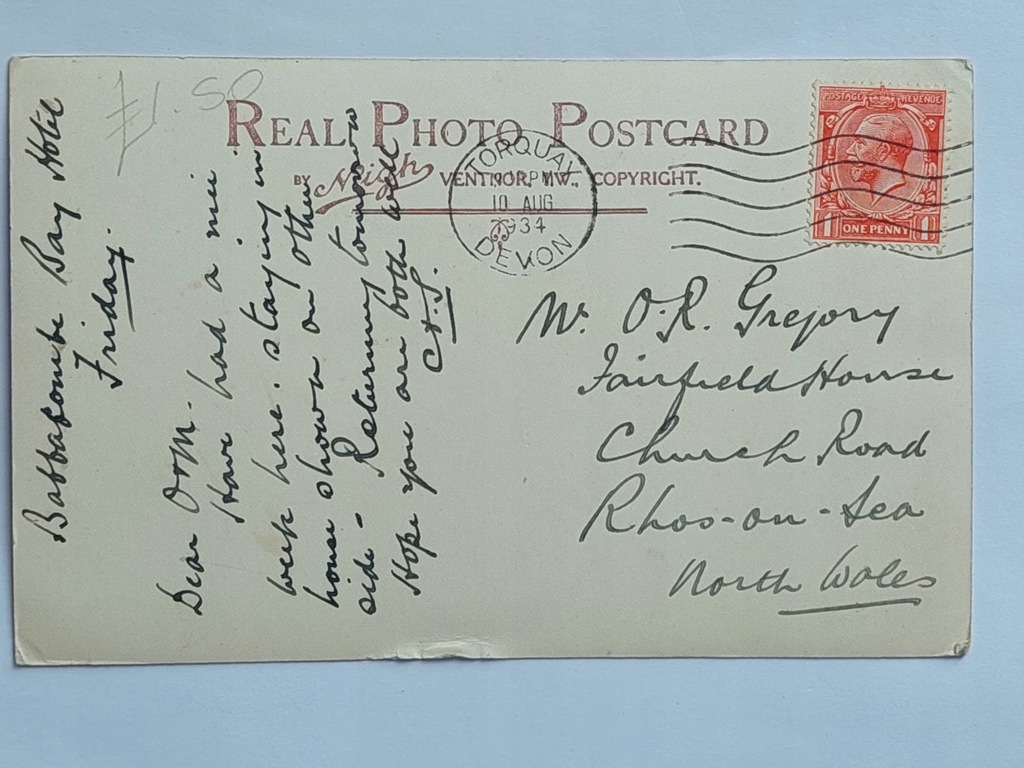 £1.50
REAL PHOTO POSTCARD
BY Neigh VENTNOR, I.W., COPYRIGHT.
TORQUAY
PM
10 AUG
1934
DEVON
POSTAGE REVENUE
1 ONE PENNY 1
Babbacombe Bay Hotel
Friday.
Dear
Have had a nice
week here. staying in
house shown on other
side - Returning tomorrow
Hope you are both well
Mr. O.R. Gregory
Fairfield House
Church Road
Rhos-on-Sea
North Wales